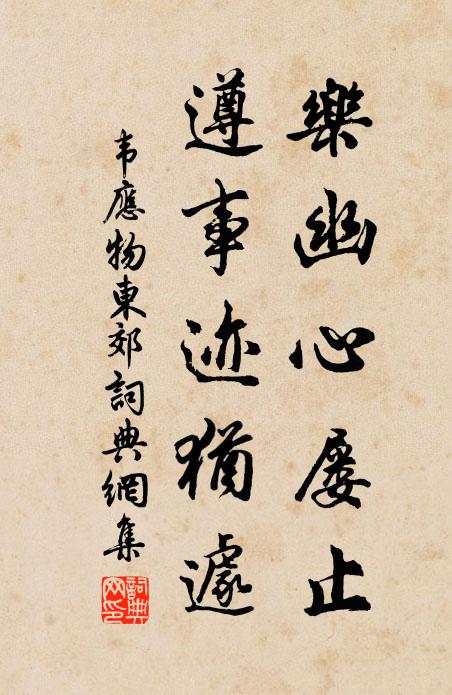 樂幽心屢止
遵事迹猶遽
韦應物東郊詞典網集
詞典
网印